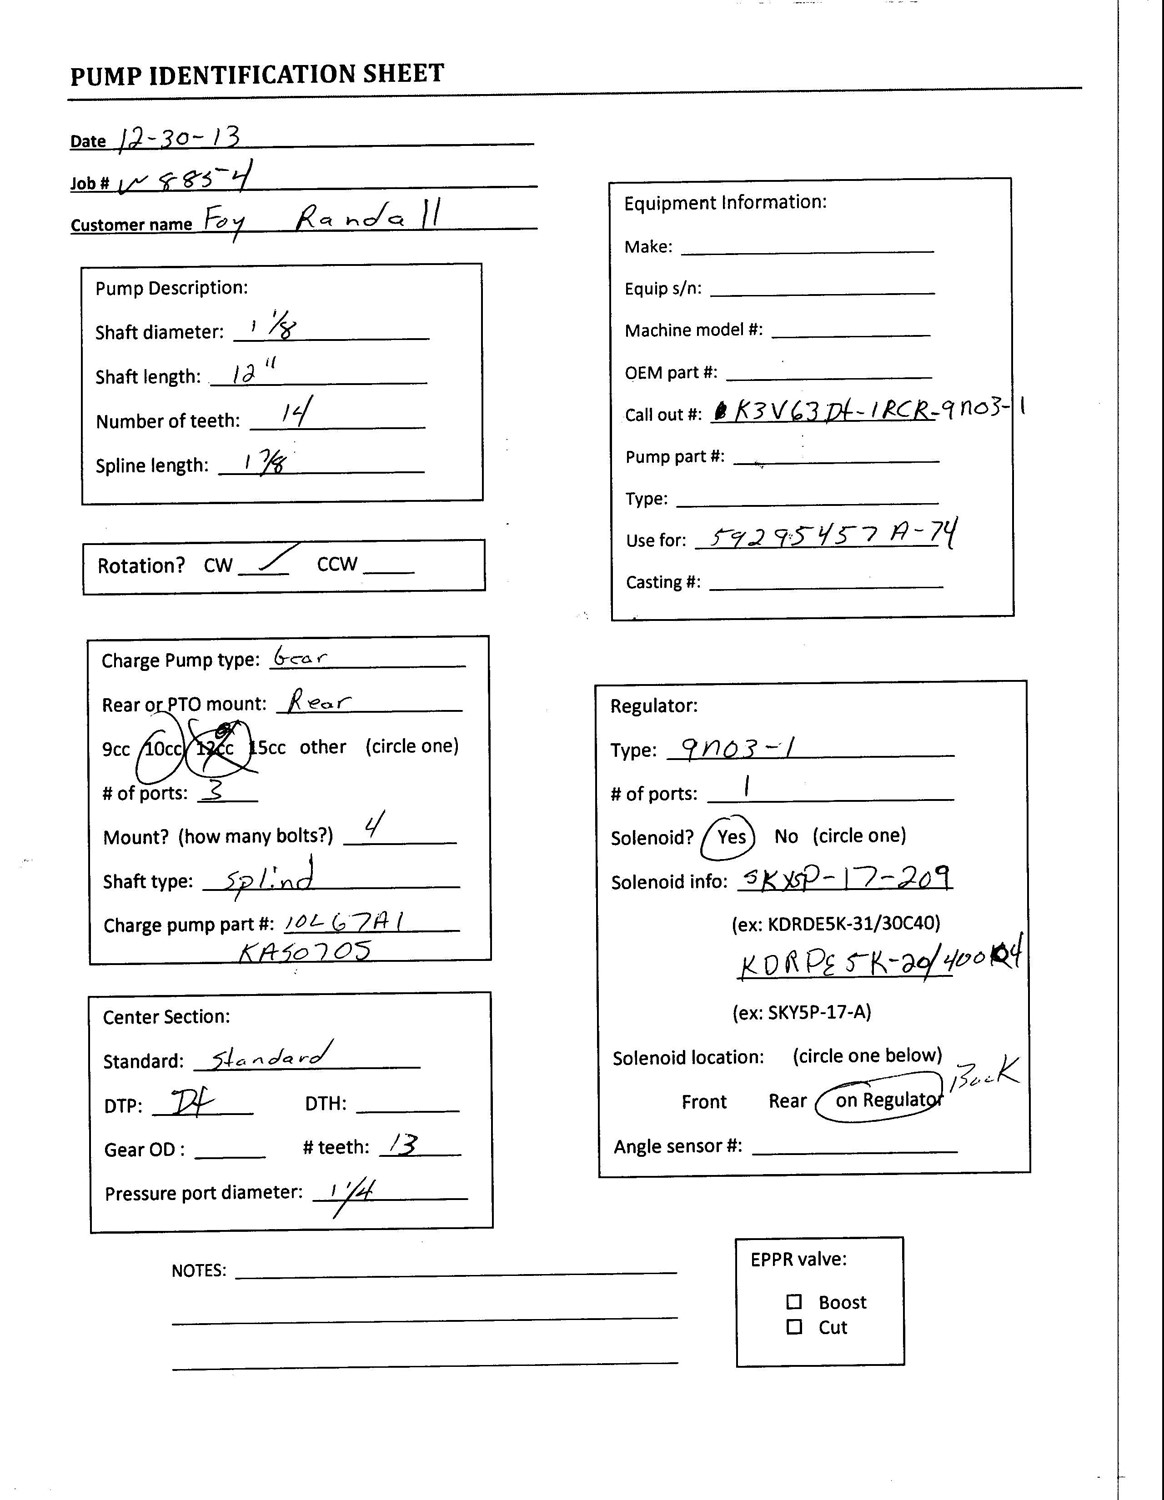 PUMP IDENTIFICATION SHEET
Date 12-30-13
Job # W 8854
Customer name Foy Randall
Pump Description:
Shaft diameter: 1 1/8
Shaft length: 12"
Number of teeth: 14
Spline length: 1 7/8
Rotation? CW ✓ CCW
Charge Pump type: Gear
Rear or PTO mount: Rear
9cc 10cc 12cc 15cc other (circle one)
# of ports: 3
Mount? (how many bolts?) 4
Shaft type: Splind
Charge pump part #: 10L67A1
KAS0705
Center Section:
Standard: Standard
DTP: Dt DTH:
Gear OD : # teeth: 13
Pressure port diameter: 1 1/4
NOTES:
Equipment Information:
Make:
Equip s/n:
Machine model #:
OEM part #:
Call out #: K3V63Dt-1RCR-9N03-1
Pump part #:
Type:
Use for: 59295457 A-74
Casting #:
Regulator:
Type: 9N03-1
# of ports: 1
Solenoid? Yes No (circle one)
Solenoid info: SKX5P-17-209
(ex: KDRDE5K-31/30C40)
KDRPE5K-20/400
(ex: SKY5P-17-A)
Solenoid location: (circle one below)
Back
Front Rear on Regulator
Angle sensor #:
EPPR valve:
☐ Boost
☐ Cut